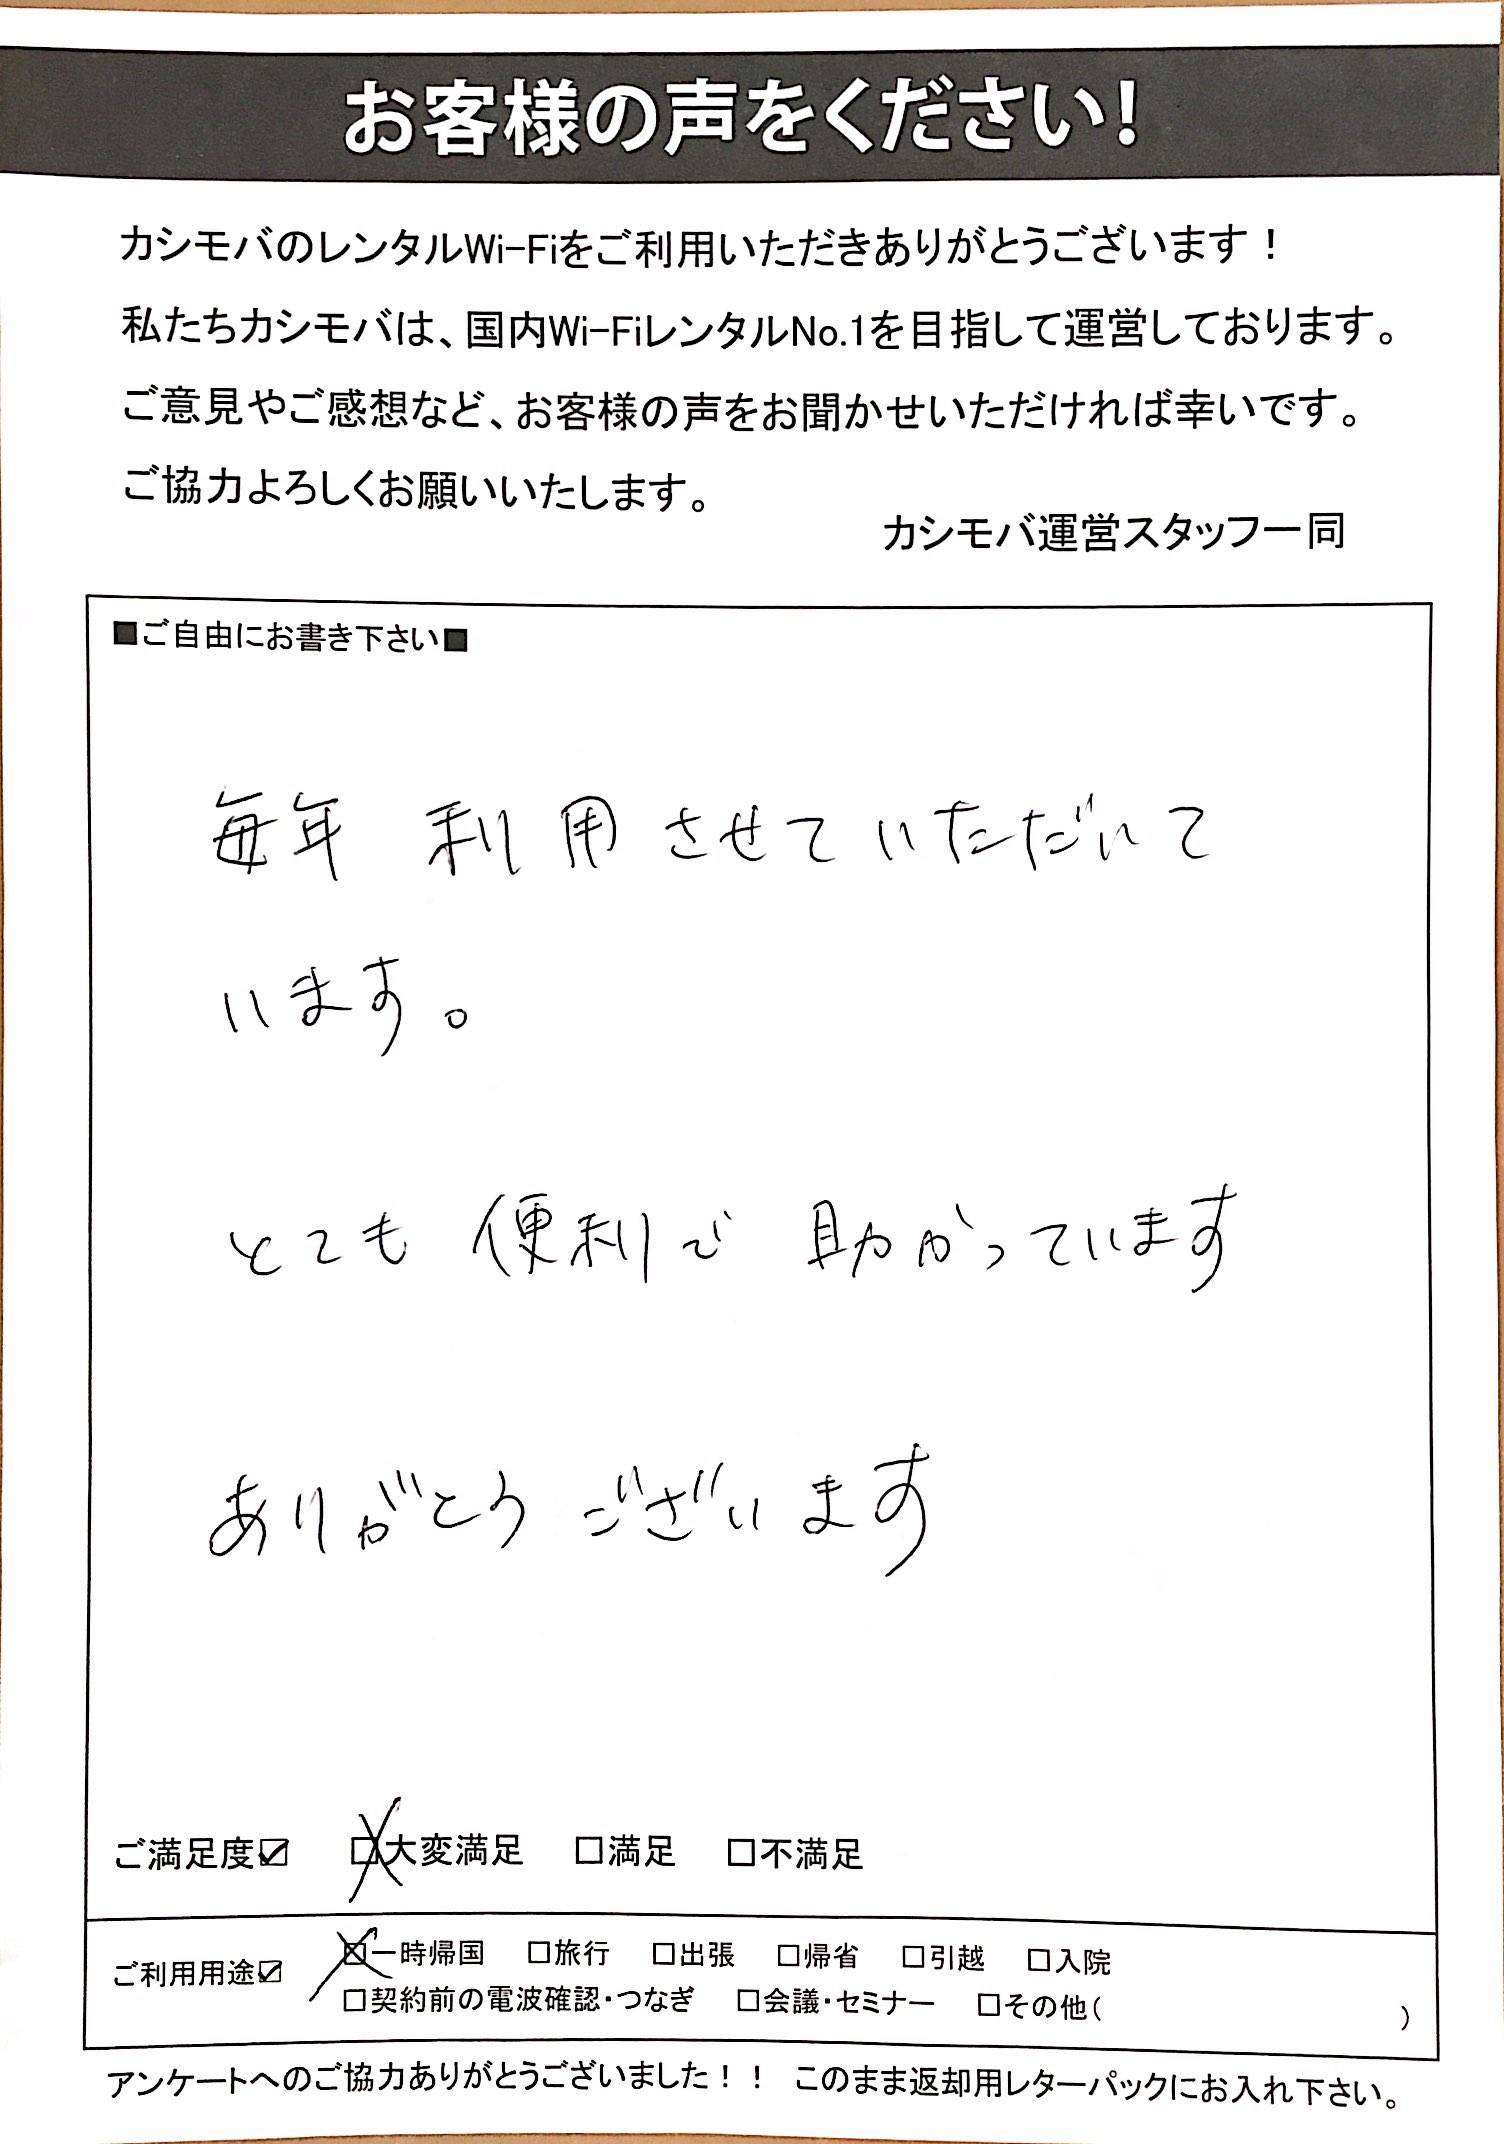 お客様の声をください!
カシモバのレンタルWi-Fiをご利用いただきありがとうございます！
私たちカシモバは、国内Wi-FiレンタルNo.1を目指して運営しております。
ご意見やご感想など、お客様の声をお聞かせいただければ幸いです。
ご協力よろしくお願いいたします。
カシモバ運営スタッフ一同
■ご自由にお書き下さい■
毎年 利用させていただいて
います。
とても 便利で 助かっています
ありがとう ございます
ご満足度☑ ☒大変満足 □満足 □不満足
ご利用用途☑ ☒一時帰国 □旅行 □出張 □帰省 □引越 □入院
□契約前の電波確認・つなぎ □会議・セミナー □その他( )
アンケートへのご協力ありがとうございました！！ このまま返却用レターパックにお入れ下さい。